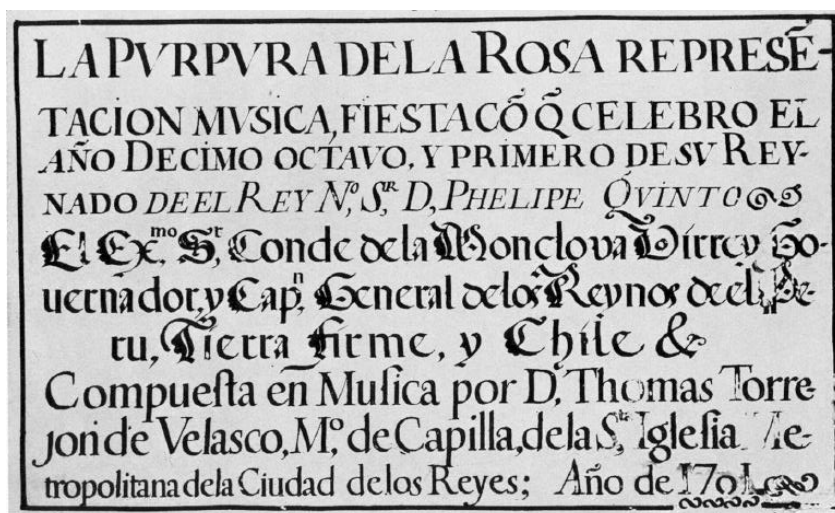 LA PVRPVRA DE LA ROSA REPRESẼ-
TACION MVSICA, FIESTA CÕ Q̃ CELEBRO EL
AÑO DECIMO OCTAVO, Y PRIMERO DE SV REY-
NADO DE EL REY Nº. Sʳ. D, PHELIPE QVINTO
El Exᵐᵒ. Sʳ, Conde de la Monclova Virrey Go-
uernador, y Capⁿ, General de los Reynos de el Pe-
ru, Tierra Firme, y Chile &
Compueſta en Muſica por D, Thomas Torre-
jon de Velasco, Mº. de Capilla, de la Sᵗᵃ Igleſia Me-
tropolitana de la Ciudad de los Reyes; Año de 1701